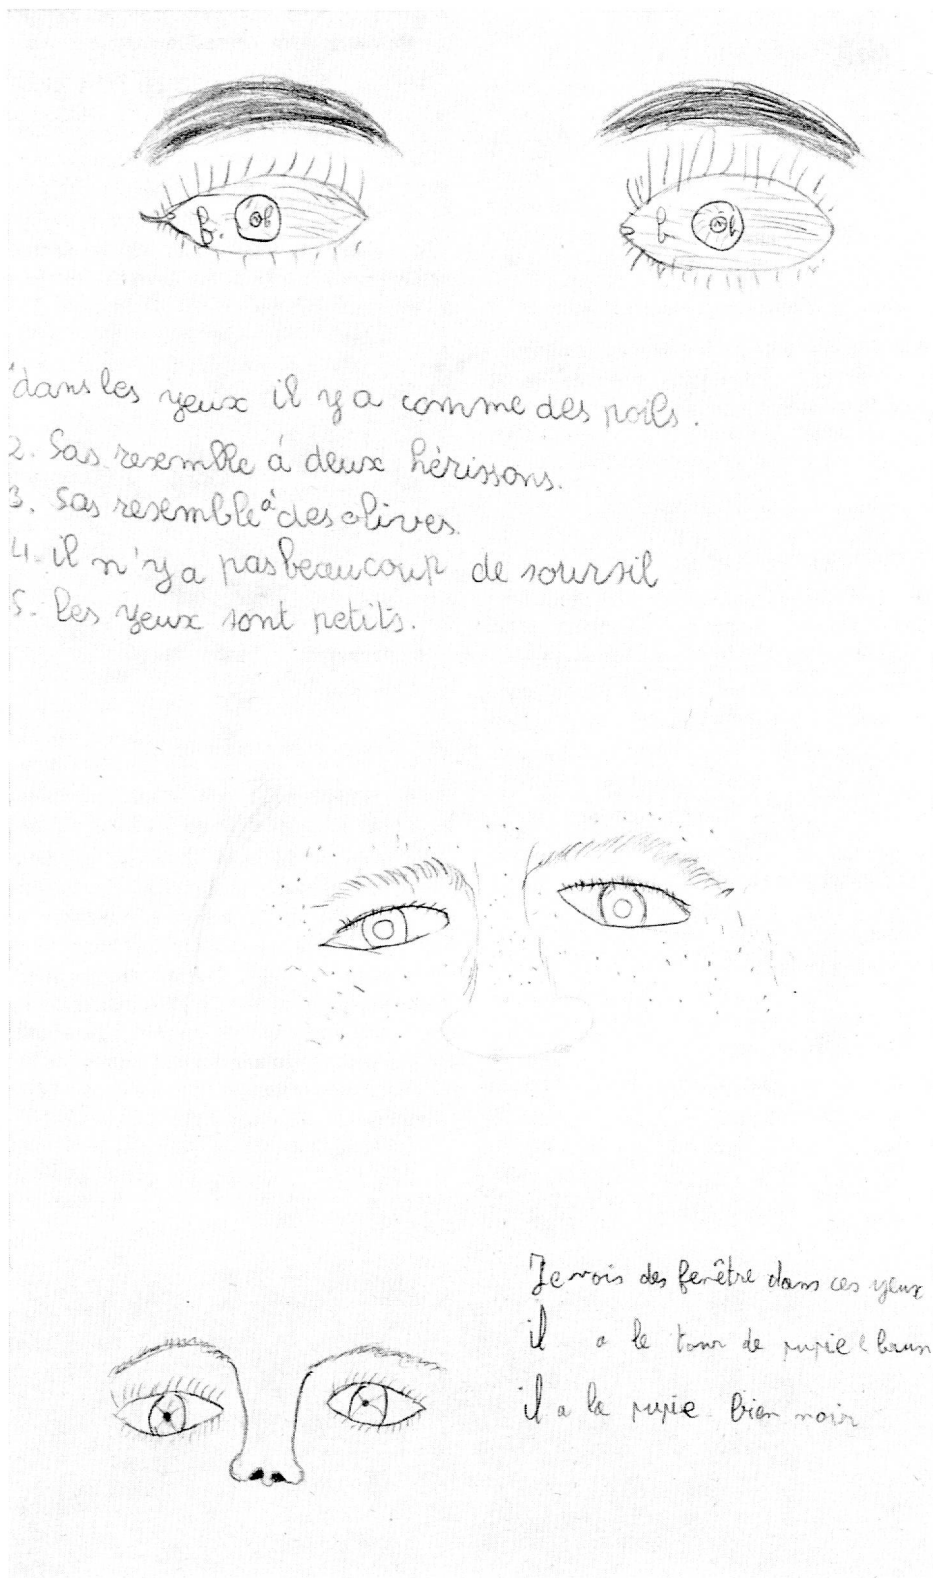 b. b
b. b
dans les yeux il y a comme des poils.
2. Sas resemble à deux hérissons.
3. Sas resemble à des olives.
4. il n'y a pas beaucoup de soursil
5. les yeux sont petits.
Je vois des fenêtre dans ces yeux
il a le tour de pupie brun
il a la pupie bien noir